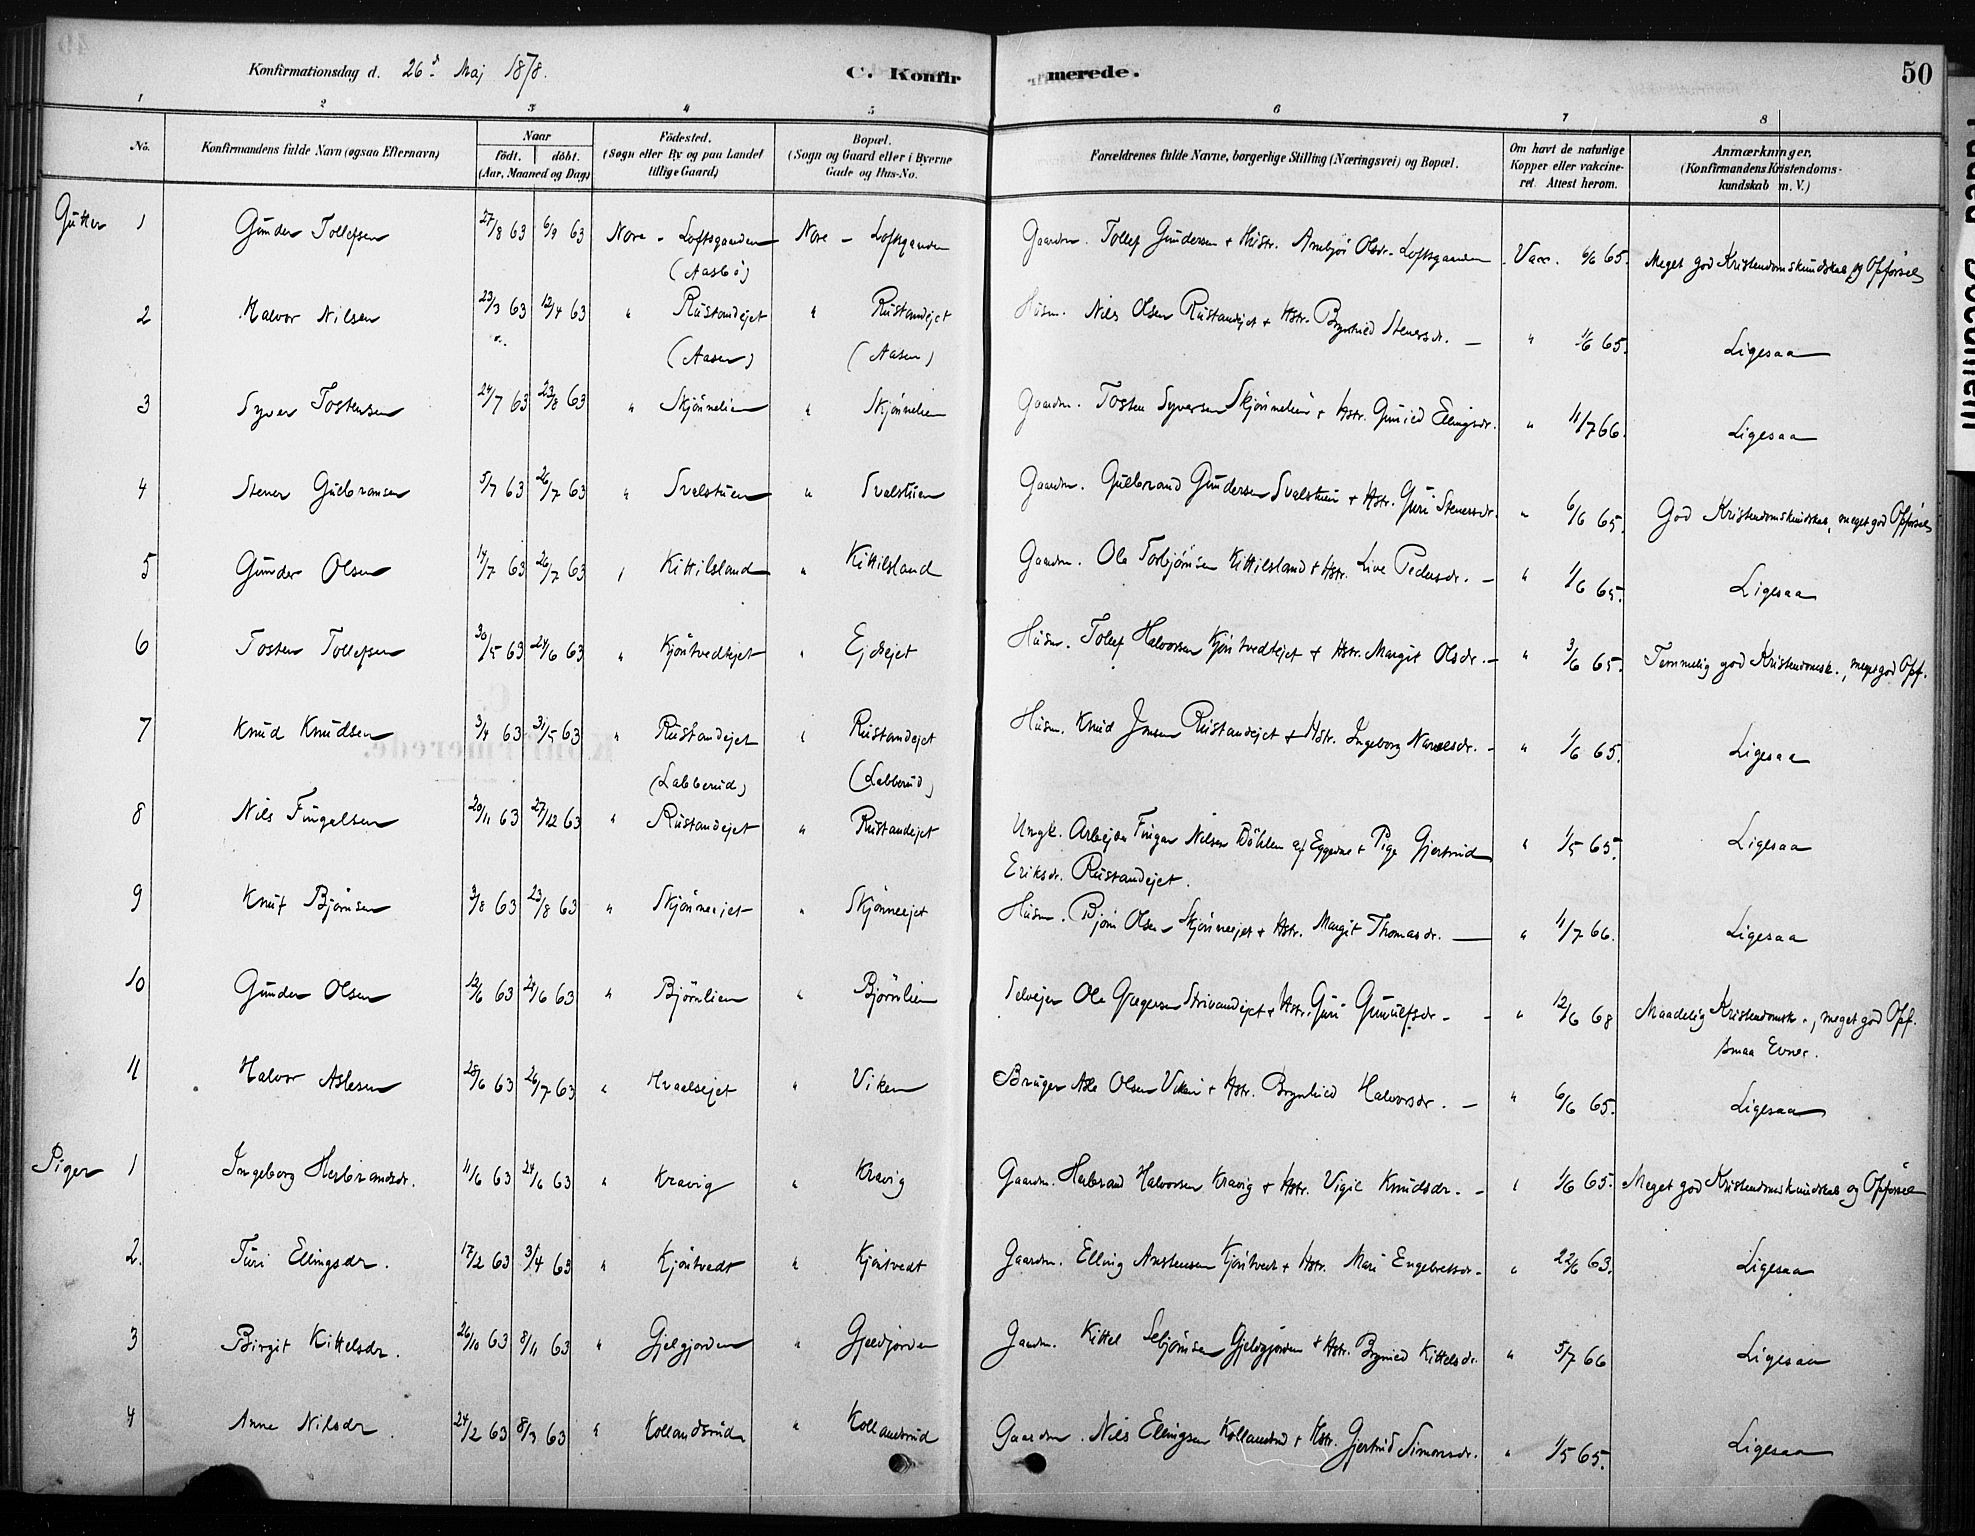 Konfirmationsdag d. 26de Maj 1878.
C. Konfirmerede.
50
1 2 3 4 5 6 7 8
No. Konfirmandens fulde Navn (ogsaa Efternavn) Naar födt. döbt. (Aar, Maaned og Dag) Födested. (Sogn eller By og paa Landet tillige Gaard) Bopæl. (Sogn og Gaard eller i Byerne Gade og Hus-No. Forældrenes fulde Navne, borgerlige Stilling (Næringsvei) og Bopæl. Om havt de naturlige Kopper eller vakcineret. Attest herom. Anmærkninger. (Konfirmandens Kristendomskundskab m. V.)
Gutter 1 Gunder Tollefsen 27/8 63 6/9 63 Nore - Loftsgaarden Nore - Loftsgaarden Gaardm. Tollef Gundersen + Hustr. Annbjør Olsdr. Loftsgaarden Vacc. 6/6 65. Meget god Kristendomskundskab og Opførsel
2 Halvor Nilsen 23/3 63 12/4 63 " (Aasbö) Rustandejet " Rustandejet Husm. Nils Olsen Rustandejet + Hstr. Brynhild Stenersdr. — " 1/6 65. Ligesaa
3 Syver Tostensen 24/7 63 23/8 63 " (Aasen) Skjönnelien " (Aasen) Skjönnelien Gaardm. Tosten Syversen Skjönnelien + Hstr. Gunild Ellingsdr. " 11/7 66. Ligesaa
4 Stener Gulbransen 5/7 63 26/7 63 " Svalstuen " Svalstuen Gaardm. Gulbrand Gundersen Svalstuen + Hstr. Guri Stenersdr. " 6/6 65. God Kristendomskundskab, meget god Opførsel
5 Gunder Olsen 14/7 63 26/7 63 " Kittilsland " Kittilsland Gaardm. Ole Torbjörnsen Kittilsland + Hstr. Live Pedersdr. — " 1/6 65. Ligesaa
6 Tosten Tollefsen 30/5 63 24/6 63 " Kjöntvedtejet " Ejdsejet Husm. Tollef Halvorsen Kjöntvedtejet + Hstr. Margit Olsdr. — " 3/6 65. Temmelig god Kristendomsk., meget god Opf.
7 Knud Knudsen 3/4 63 31/5 63 " Rustandejet " Rustandejet Husm. Knud Jonsen Rustandejet + Hstr. Ingeborg Narvesdr. - " 1/6 65. Ligesaa
8 Nils Fingalsen 20/11 63 27/12 63 " (Labberud) Rustandejet " (Labberud) Rustandejet Ungk. Arbejder Fingar Nilsen Böhlen af Eggedne + Pige Gjertrud " 1/5 65. Ligesaa
Eriksdr. Rustandejet.
9 Knut Bjørnsen 3/8 63 23/8 63 " Skjönneejet " Skjönneejet Husm. Bjørn Olsen Skjönneejet + Hstr. Margit Thomasdr. — " 11/7 66. Ligesaa
10 Gunder Olsen 12/6 63 24/6 63 " Bjørnlien " Bjørnlien Selvejer Ole Gregersen Strivandejet + Hstr. Guri Gunulfsdr. - " 12/6 68 Maadelig Kristendomsk., meget god Opf.
smaa Evner.
11 Halvor Aslesen 28/6 63 26/7 63 " Hvaalsejet " Viken Bruger Asle Olsen Viken + Hstr. Brynhild Halvorsdr. — " 6/6 65. Ligesaa
Piger 1 Ingeborg Herbrandsdr. 11/6 63 24/6 63 " Kravig " Kravig Gaardm. Herbrand Halvorsen Kravig + Hstr. Vigil Knudsdr. - " 1/6 65. Meget god Kristendomskundskab og Opførsel
2. Turi Ellingsdr. 17/2 63 3/4 63 " Kjöntvedt " Kjöntvedt Gaardm. Elling Anstensen Kjöntvedt + Hstr. Mari Engebretsdr. - " 22/6 63. Ligesaa
3 Birgit Kittelsdr. 26/10 63 8/11 63 " Gjelgjorden " Gjeldjorden Gaardm. Kittel Sebjörnsen Gjelgjorden + Hstr. Brynild Kittelsdr. " 5/7 66 Ligesaa
4 Anne Nilsdr. 24/2 63 8/3 63 " Kollandsrud " Kollandsrud Gaardm. Nils Ellingsen Kollandsrud + Hstr. Gjertrud Simonsdr. " 1/5 65. Ligesaa